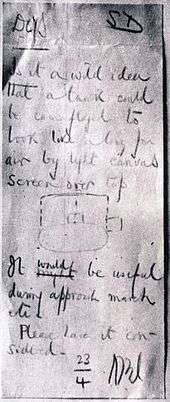 DCGS SD
Is it a wild idea
that a tank could
be camouflaged to
look like a lorry from
air by light canvas
screens over top
It would be useful
during approach march
etc.
Please have it con-
sidered.
23
4